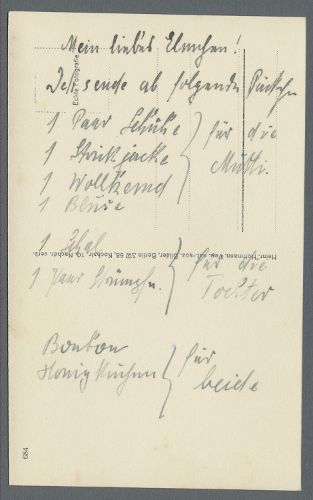 Mein liebes Elmchen!
Ich sende ab folgende Päckchen
1 Paar Schuhe } für die
1 Strickjacke Mutti.
1 Wollhemd
1 Bluse
1 Schal } für die
1 Paar Strümpfe. Tochter
Bonbon } für
Honigkuchen beide
Echte Fotografie
Heinr. Hoffmann, Verl. nat.-soz. Bilder, Berlin SW 68, Kochstr. 10, Nachdr. verb.
684